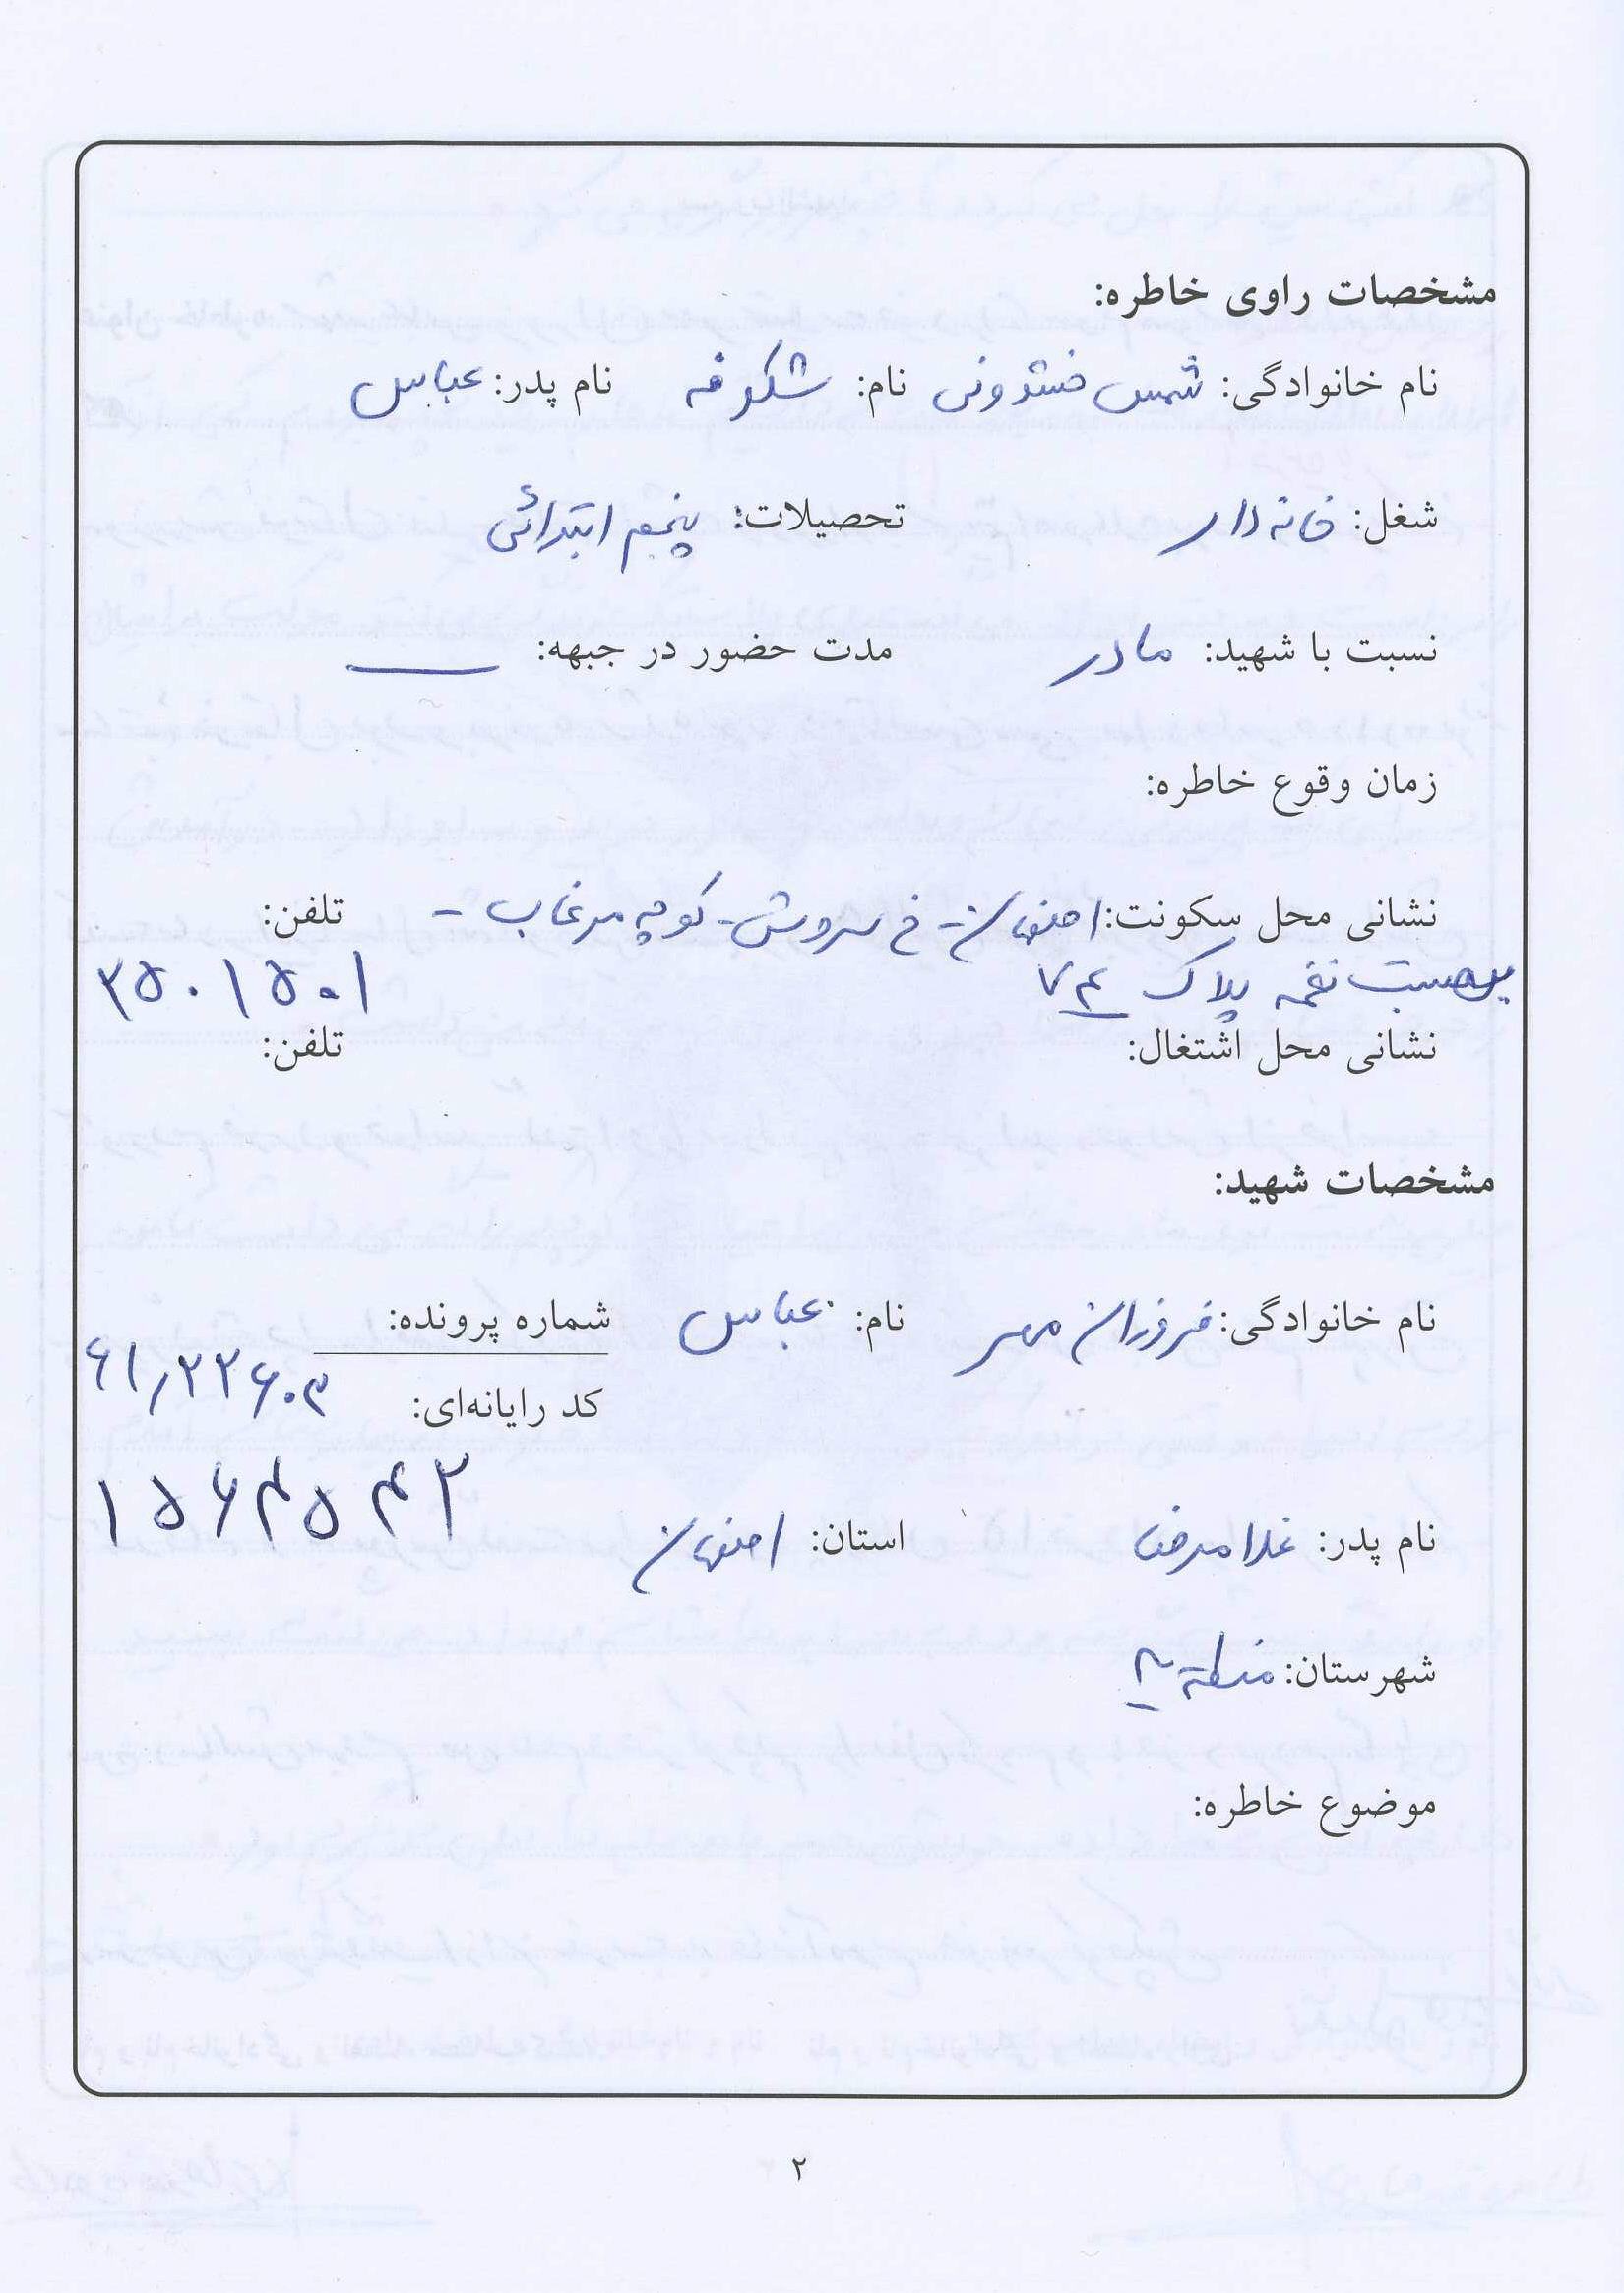 مشخصات راوی خاطره:
نام خانوادگی: شمس خشوئی نام: شکوفه نام پدر: عباس
شغل: خانه دار تحصیلات: پنجم ابتدائی
نسبت با شهید: مادر مدت حضور در جبهه: ــــ
زمان وقوع خاطره:
نشانی محل سکونت: اصفهان - خ سروش - کوچه مرغاب - تلفن:
بن‌بست نغمه پلاک ۷۴ ۲۵۰۱۵۰۱
نشانی محل اشتغال: تلفن:
مشخصات شهید:
نام خانوادگی: فروزان مهر نام: عباس شماره پرونده:
۶۱٫۲۲۶۰۳
کد رایانه‌ای:
۱۵۶۴۵۴۲
نام پدر: غلامرضا استان: اصفهان
شهرستان: منطقه ۴
موضوع خاطره:
۲